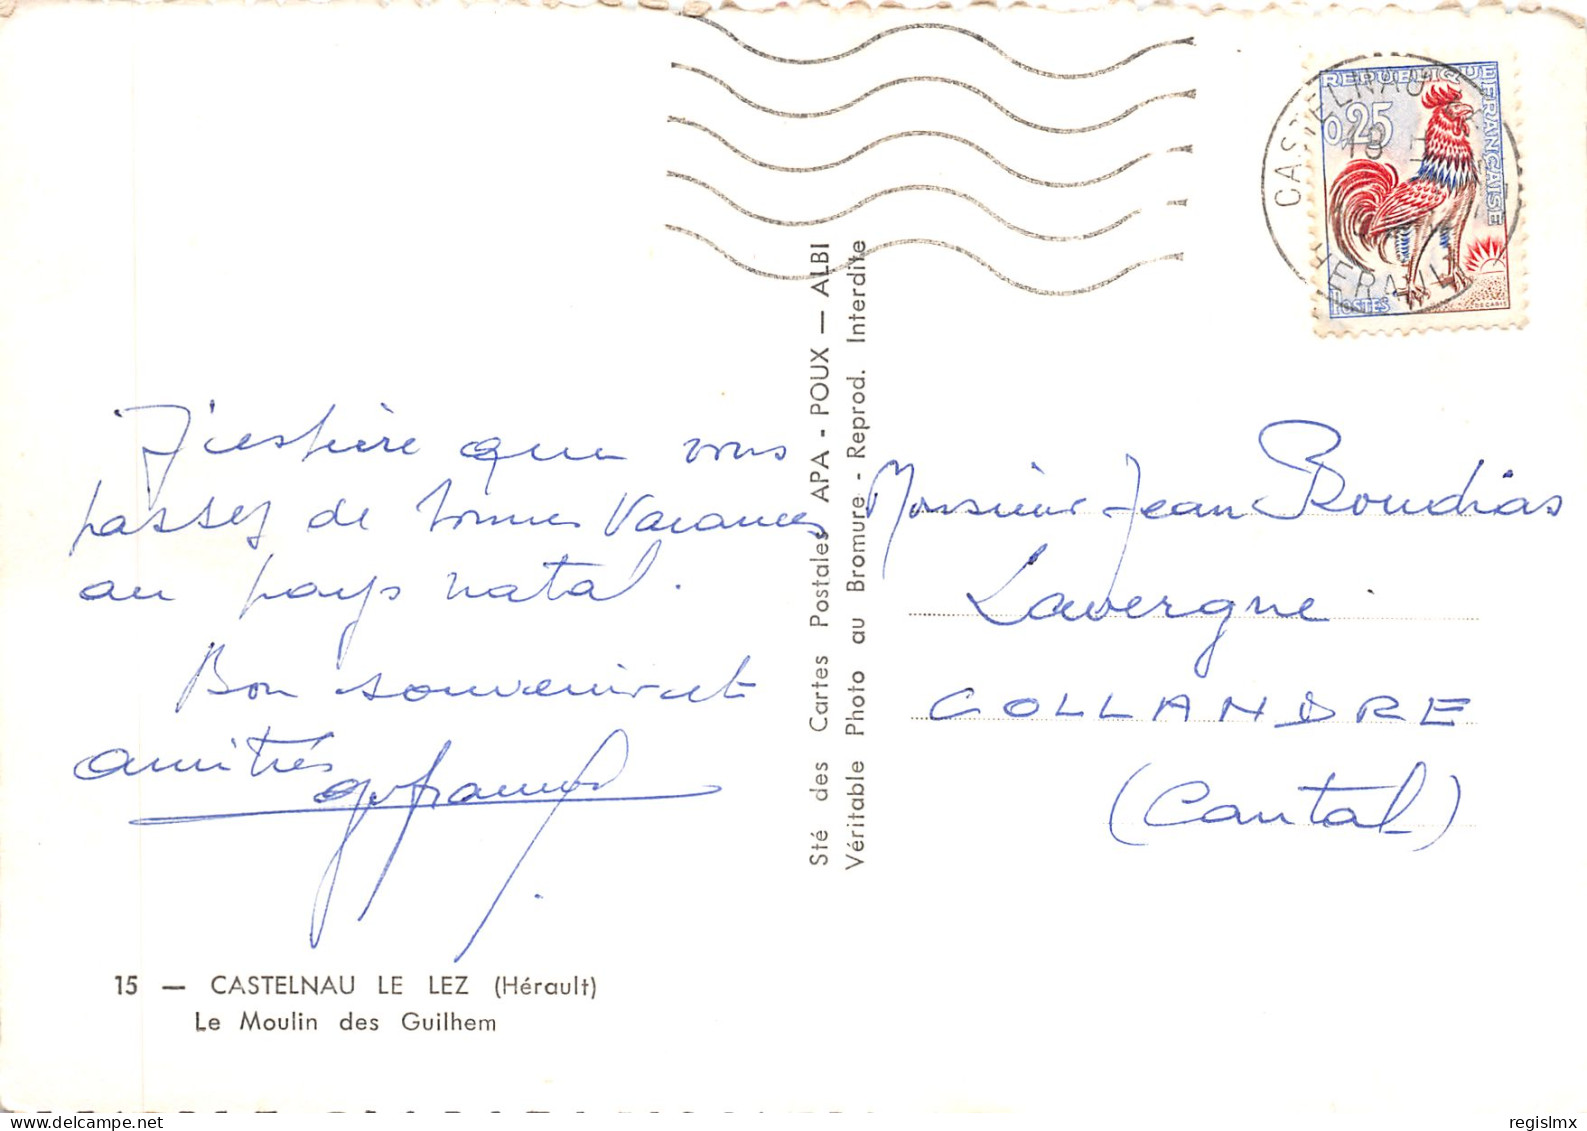 J'espère que vous
passez de bonnes Vacances
au pays natal.
Bon souvenir et
amitiés
15 — CASTELNAU LE LEZ (Hérault)
Le Moulin des Guilhem
Sté des Cartes Postales APA - POUX — ALBI
Véritable Photo au Bromure - Reprod. Interdite
CASTELNAU
HERAULT
REPUBLIQUE FRANÇAISE
0,25
POSTES
DECARIS
Monsieur Jean Roudias
Lavergne
COLLANDRE
(Cantal)
regislmx